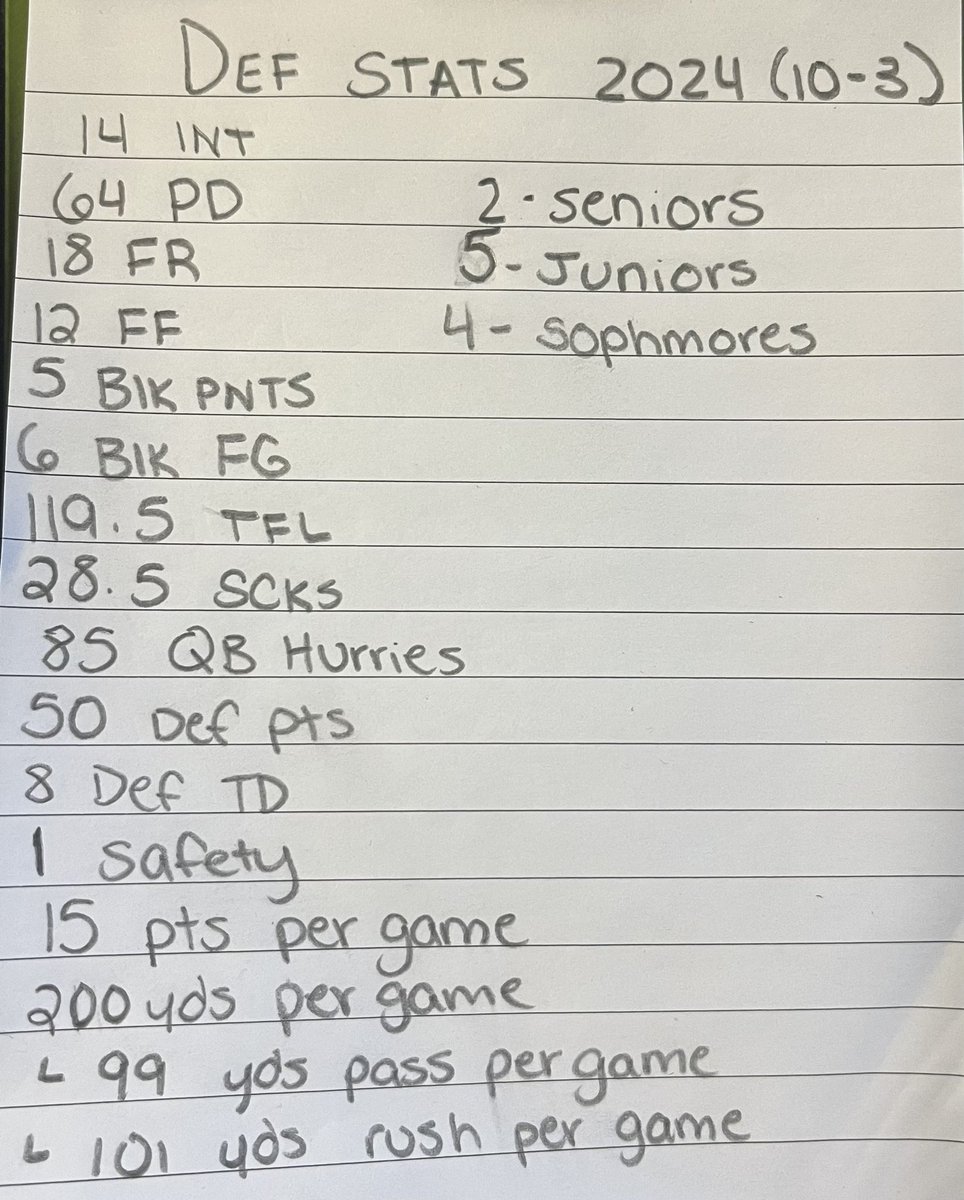 DEF STATS 2024 (10-3)
14 INT
64 PD 2-seniors
18 FR 5-Juniors
12 FF 4- sophmores
5 BlK PNTS
6 BlK FG
119.5 TFL
28.5 SCKS
85 QB Hurries
50 Def pts
8 Def TD
1 Safety
15 pts per game
200 yds per game
↳ 99 yds pass per game
↳ 101 yds rush per game